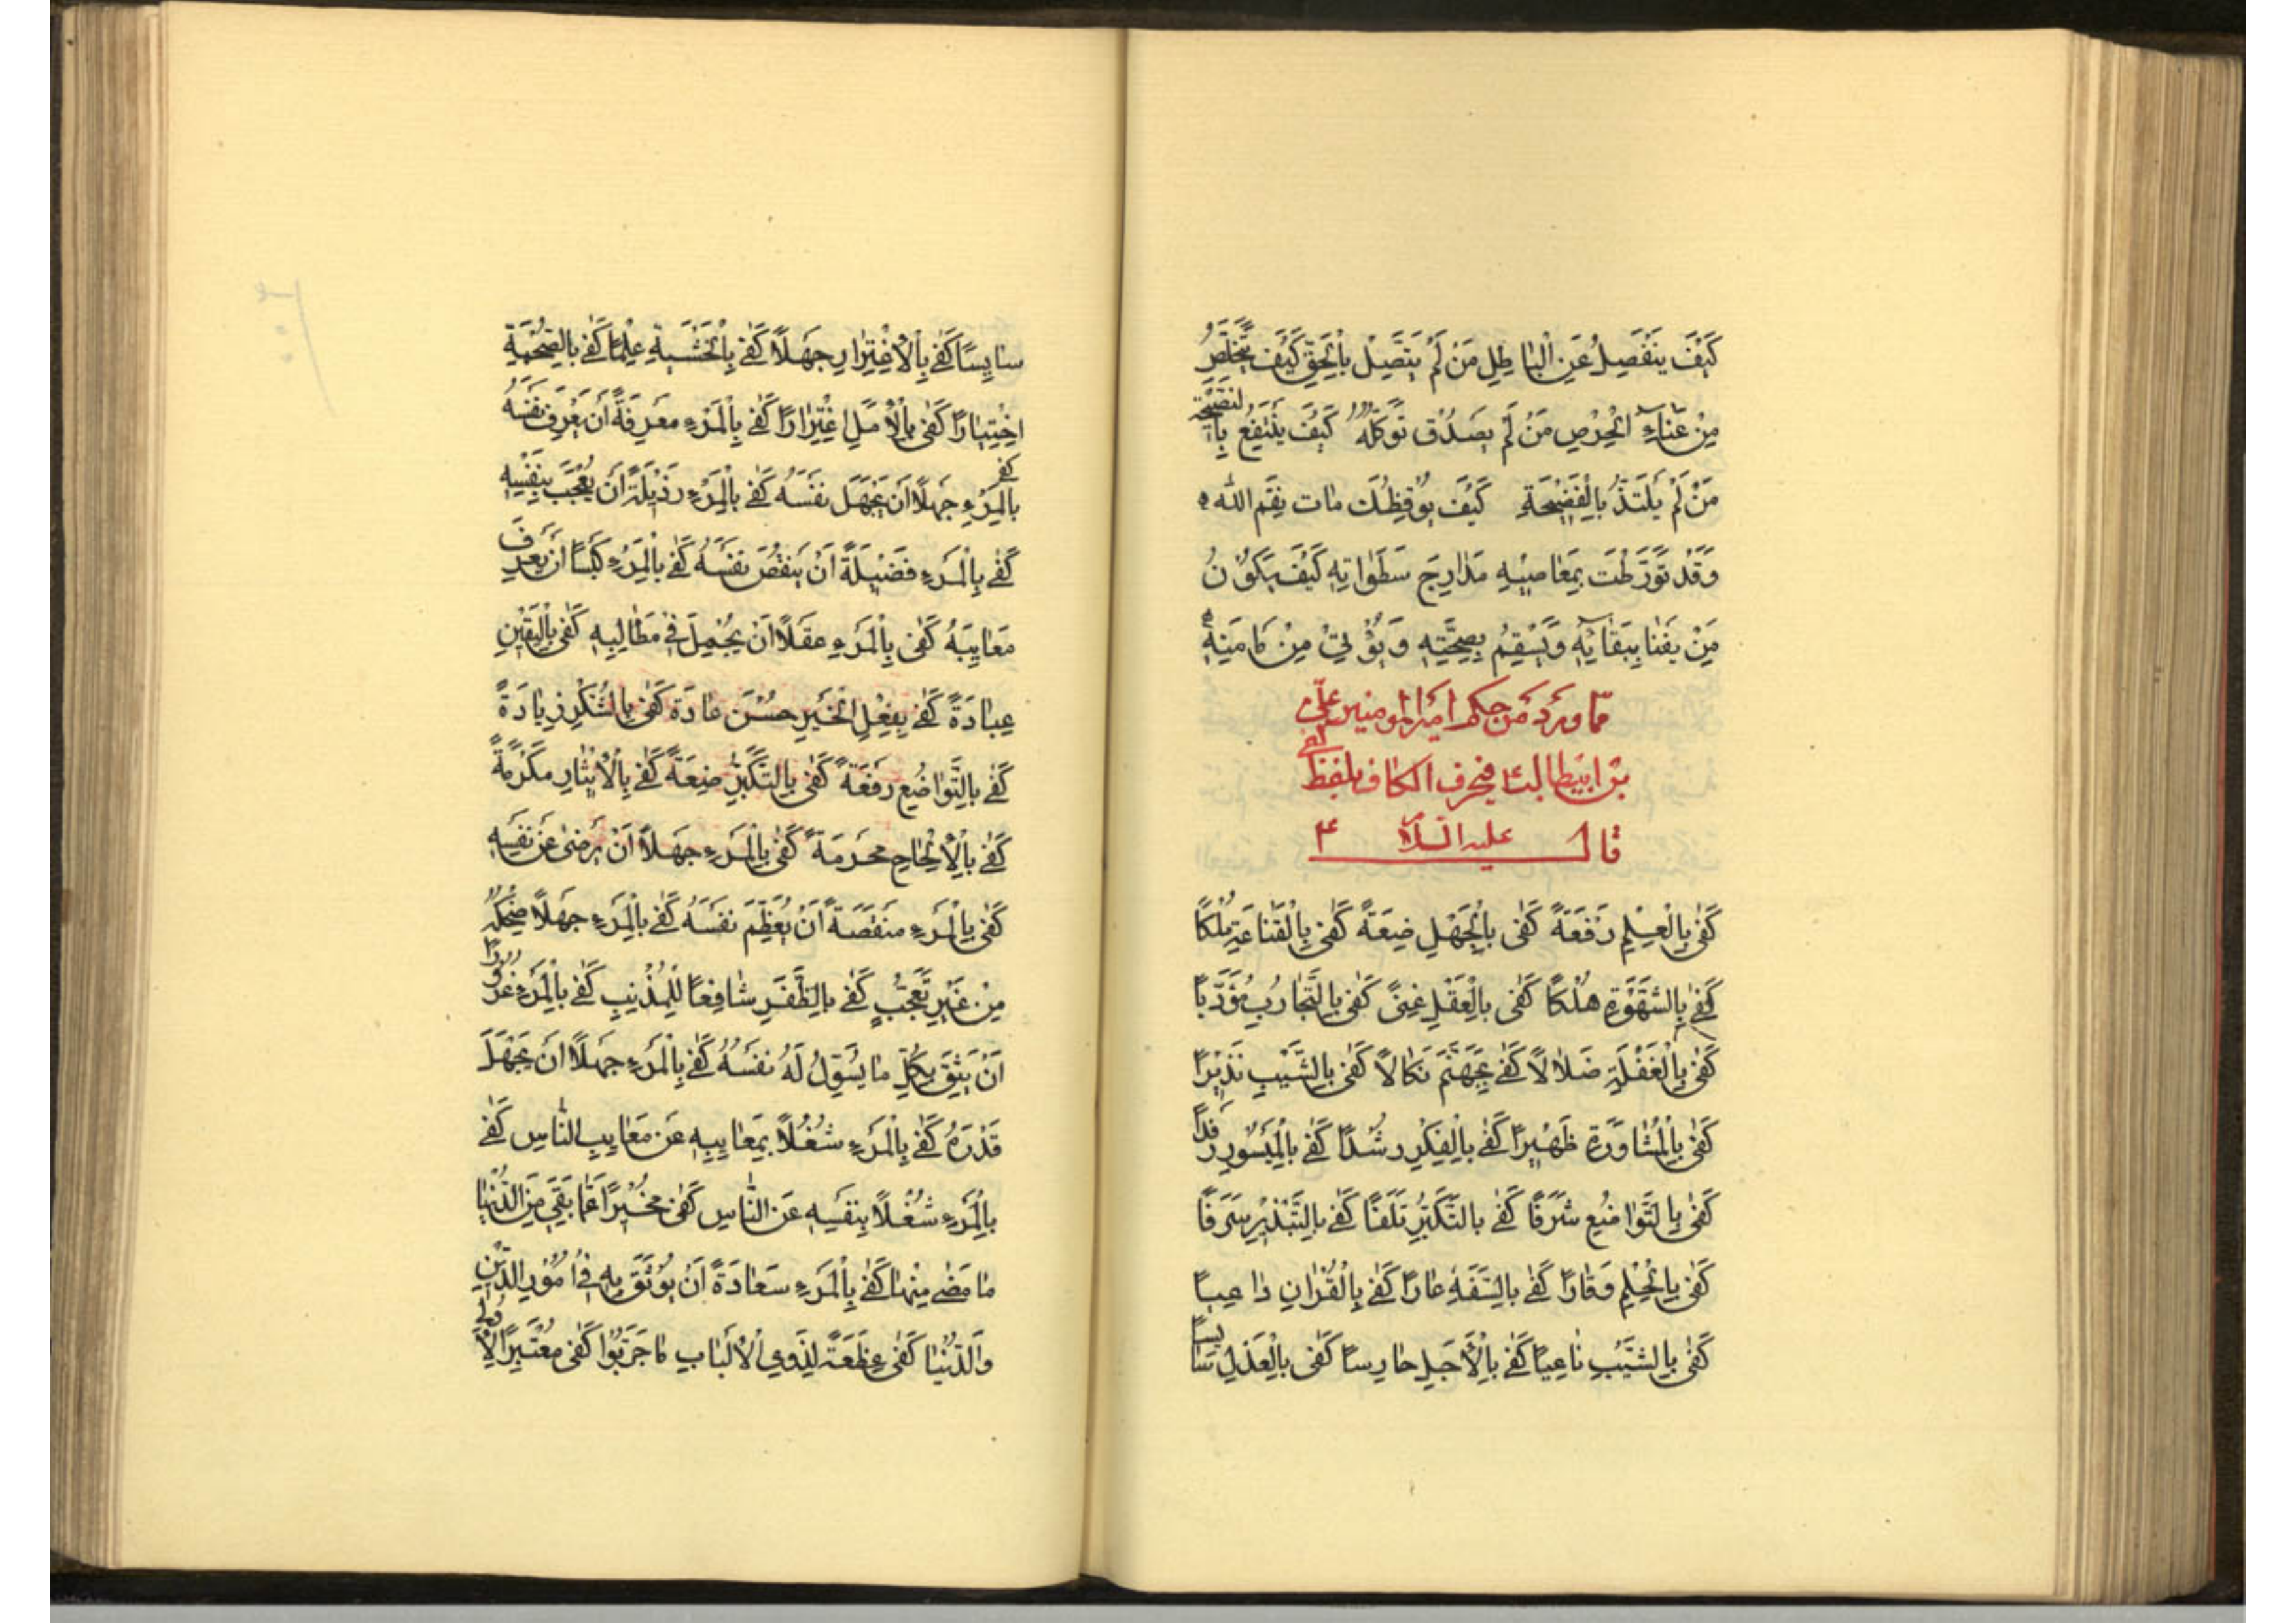 كَيْفَ يَنْفَصِلُ عَنِ الْبَاطِلِ مَنْ لَمْ يَتَّصِلْ بِالْحَقِّ كَيْفَ يَتَخَلَّصُ
مِنْ عَنَاءِ الْحِرْصِ مَنْ لَمْ يَصْدُقْ تَوَكُّلُهُ كَيْفَ يَنْتَفِعُ بِالنَّصِيحَةِ
مَنْ لَمْ يَلْتَذُّ بِالْفَضِيحَةِ كَيْفَ يُوقِظُكَ مات نِقَمِ اللّٰه
وَقَدْ تَوَرَّطْتَ بِمَعَاصِيهِ مَدَارِجَ سَطَوَاتِهِ كَيْفَ يَكُونُ
مَنْ يَفْنَا بِبَقَائِهِ وَيَسْقِمُ بِصِحَّتِهِ وَيُؤْتِيْ مِنْ مَامَنِهِ
مما ورد من حكم امير المومنين علىّ
بن ابيطالب ع في حرف الكاف بلفظ كفى
قال عليه السلام
كَفٰى بِالْعِلْمِ رَفْعَةً كَفٰى بِالْجَهْلِ ضِعَةً كَفٰى بِالْقَنَاعَةِ مُلْكًا
كَفٰى بِالشَّهْوَةِ هُلْكًا كَفٰى بِالْعَقْلِ غِنًى كَفٰى بِالتَّجَارُبِ مُؤَدِّبًا
كَفٰى بِالْغَفْلَةِ ضَلَالًا كَفٰى بِجَهَنَّمَ نَكَالًا كَفٰى بِالشَّيْبِ نَذِيْرًا
كَفٰى بِالْمُشَاوَرَةِ ظَهِيْرًا كَفٰى بِالْفِكْرِ رُشْدًا كَفٰى بِالْمَيْسُورِ رَفْدًا
كَفٰى بِالتَّوَاضُعِ شَرَفًا كَفٰى بِالتَّكَبُّرِ تَلَفًا كَفٰى بِالتَّبْذِيْرِ سَرَفًا
كَفٰى بِالْحِلْمِ وَقَارًا كَفٰى بِالسَّفَهِ عَارًا كَفٰى بِالْقُرْاٰنِ دَاعِيًا
كَفٰى بِالشَّيْبِ نَاعِيًا كَفٰى بِالْأَجَلِ حَارِسًا كَفٰى بِالْعَدْلِ سَايِسًا
سَايِسًا كَفٰى بِالْاِغْتِرَارِ جَهْلًا كَفٰى بِالْخَشْيَةِ عِلْمًا كَفٰى بِالصُّحْبَةِ
اخْتِبَارًا كَفٰى بِالْأَمَلِ اغْتِرَارًا كَفٰى بِالْمَرْءِ مَعْرِفَةً أَنْ يَعْرِفَ نَفْسَهُ
كَفٰى بِالْمَرْءِ جَهْلًا أَنْ يَجْهَلَ نَفْسَهُ كَفٰى بِالْمَرْءِ رَذِيْلَةً أَنْ يُعْجَبَ بِنَفْسِهِ
كَفٰى بِالْمَرْءِ فَضِيْلَةً أَنْ يَنْقُصَ نَفْسَهُ كَفٰى بِالْمَرْءِ كَيْسًا أَنْ يَعْرِفَ
مَعَايِبَهُ كَفٰى بِالْمَرْءِ عَقْلًا أَنْ يُجْمِلَ فِي مَطَالِبِهِ كَفٰى بِالْيَقِيْنِ
عِبَادَةً كَفٰى بِفِعْلِ الْخَيْرِ حُسْنَ عَادَةٍ كَفٰى بِالشُّكْرِ زِيَادَةً
كَفٰى بِالتَّوَاضُعِ رَفْعَةً كَفٰى بِالتَّكَبُّرِ ضِعَةً كَفٰى بِالْاِيْثَارِ مَكْرُمَةً
كَفٰى بِالْاِلْحَاحِ مَحْرَمَةً كَفٰى بِالْمَرْءِ جَهْلًا أَنْ يَرْضٰى عَنْ نَفْسِهِ
كَفٰى بِالْمَرْءِ مَنْقَصَةً أَنْ يُعَظِّمَ نَفْسَهُ كَفٰى بِالْمَرْءِ جَهْلًا ضِحْكُهُ
مِنْ غَيْرِ تَعَجُّبٍ كَفٰى بِالظَّفَرِ شَافِعًا لِلْمُذْنِبِ كَفٰى بِالْمَرْءِ غُرُورًا
أَنْ يَثِقَ بِكُلِّ مَا يُسَوِّلُ لَهُ نَفْسُهُ كَفٰى بِالْمَرْءِ جَهْلًا أَنْ يَجْهَلَ
قَدْرَهُ كَفٰى بِالْمَرْءِ شُغْلًا بِمَعَايِبِهِ عَنْ مَعَايِبِ النَّاسِ كَفٰى
بِالْمَرْءِ شُغْلًا بِنَفْسِهِ عَنِ النَّاسِ كَفٰى مُخْبِرًا عَمَّا بَقِيَ مِنَ الدُّنْيَا
مَا مَضٰى مِنْهَا كَفٰى بِالْمَرْءِ سَعَادَةً أَنْ يُوْثَقَ بِهِ فِي أُمُوْرِ الدِّيْنِ
وَالدُّنْيَا كَفٰى عِظَةً لِذَوِي الْأَلْبَابِ مَا جَرَّبُوْا كَفٰى مُعْتَبَرًا لِأُولِي